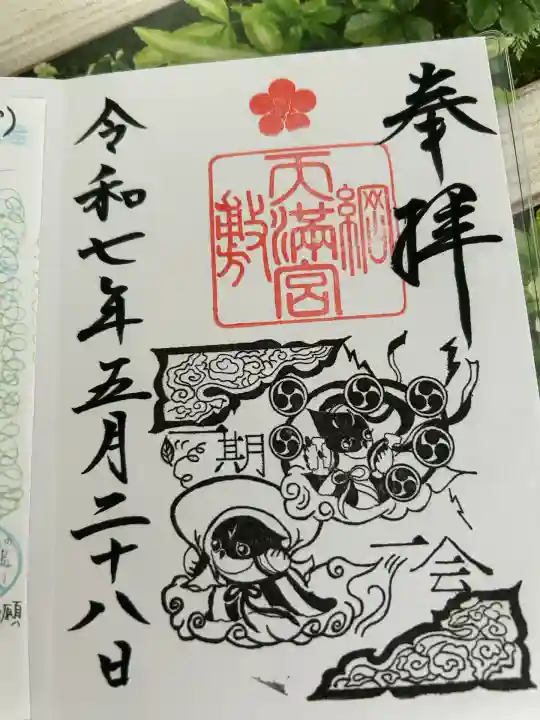 奉拝
綱敷
天満宮
一期
一会
令和七年五月二十八日
願